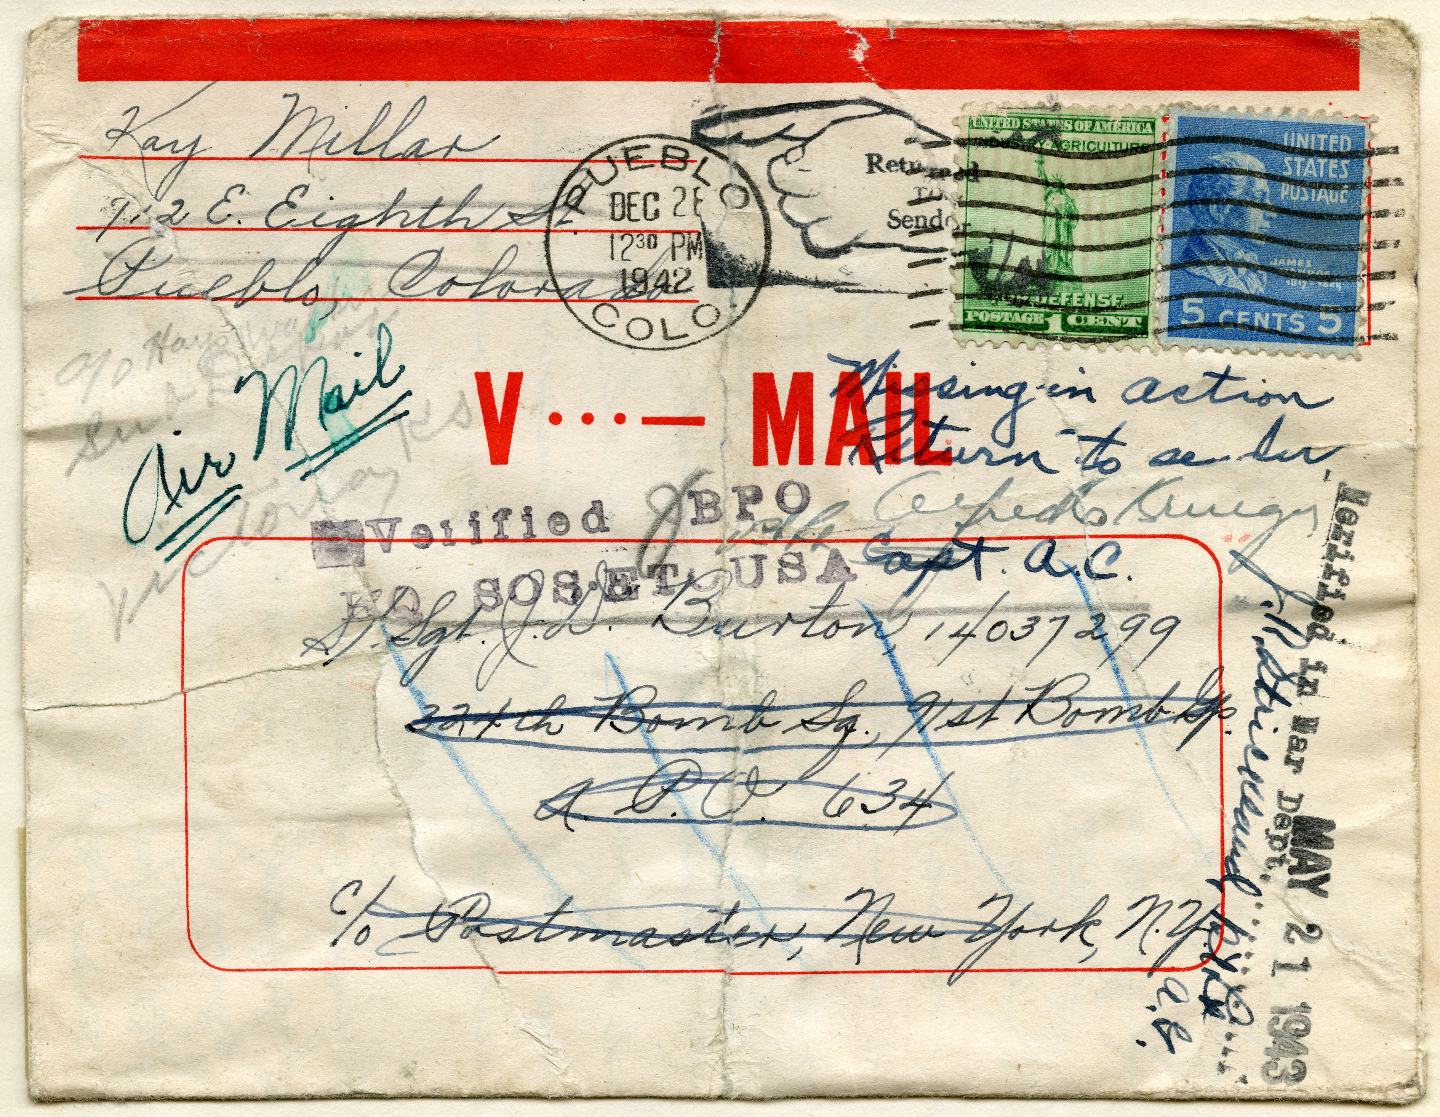 Kay Millar
912 E. Eighth St.
Pueblo, Colorado
PUEBLO
DEC 28
12 30 PM
1942
COLO.
Returned
TO
Sender
UNITED STATES OF AMERICA
INDUSTRY AGRICULTURE
FOR DEFENSE
POSTAGE 1 CENT
UNITED
STATES
POSTAGE
JAMES
5 CENTS 5
c/o Hays
Victoria Ks
Air Mail
V ···— MAIL
Missing in action
Return to sender
Alfredo Krueger
Capt. A.C.
Verified BPO
HQ SOS ET USA
S. Sgt. J. D. Burton, 14037299
324th Bomb Sq., 91st Bomb Gp.
A. P. O. 634
c/o Postmaster, New York, N.Y.
Verified in War Dept.
MAY 21 1943